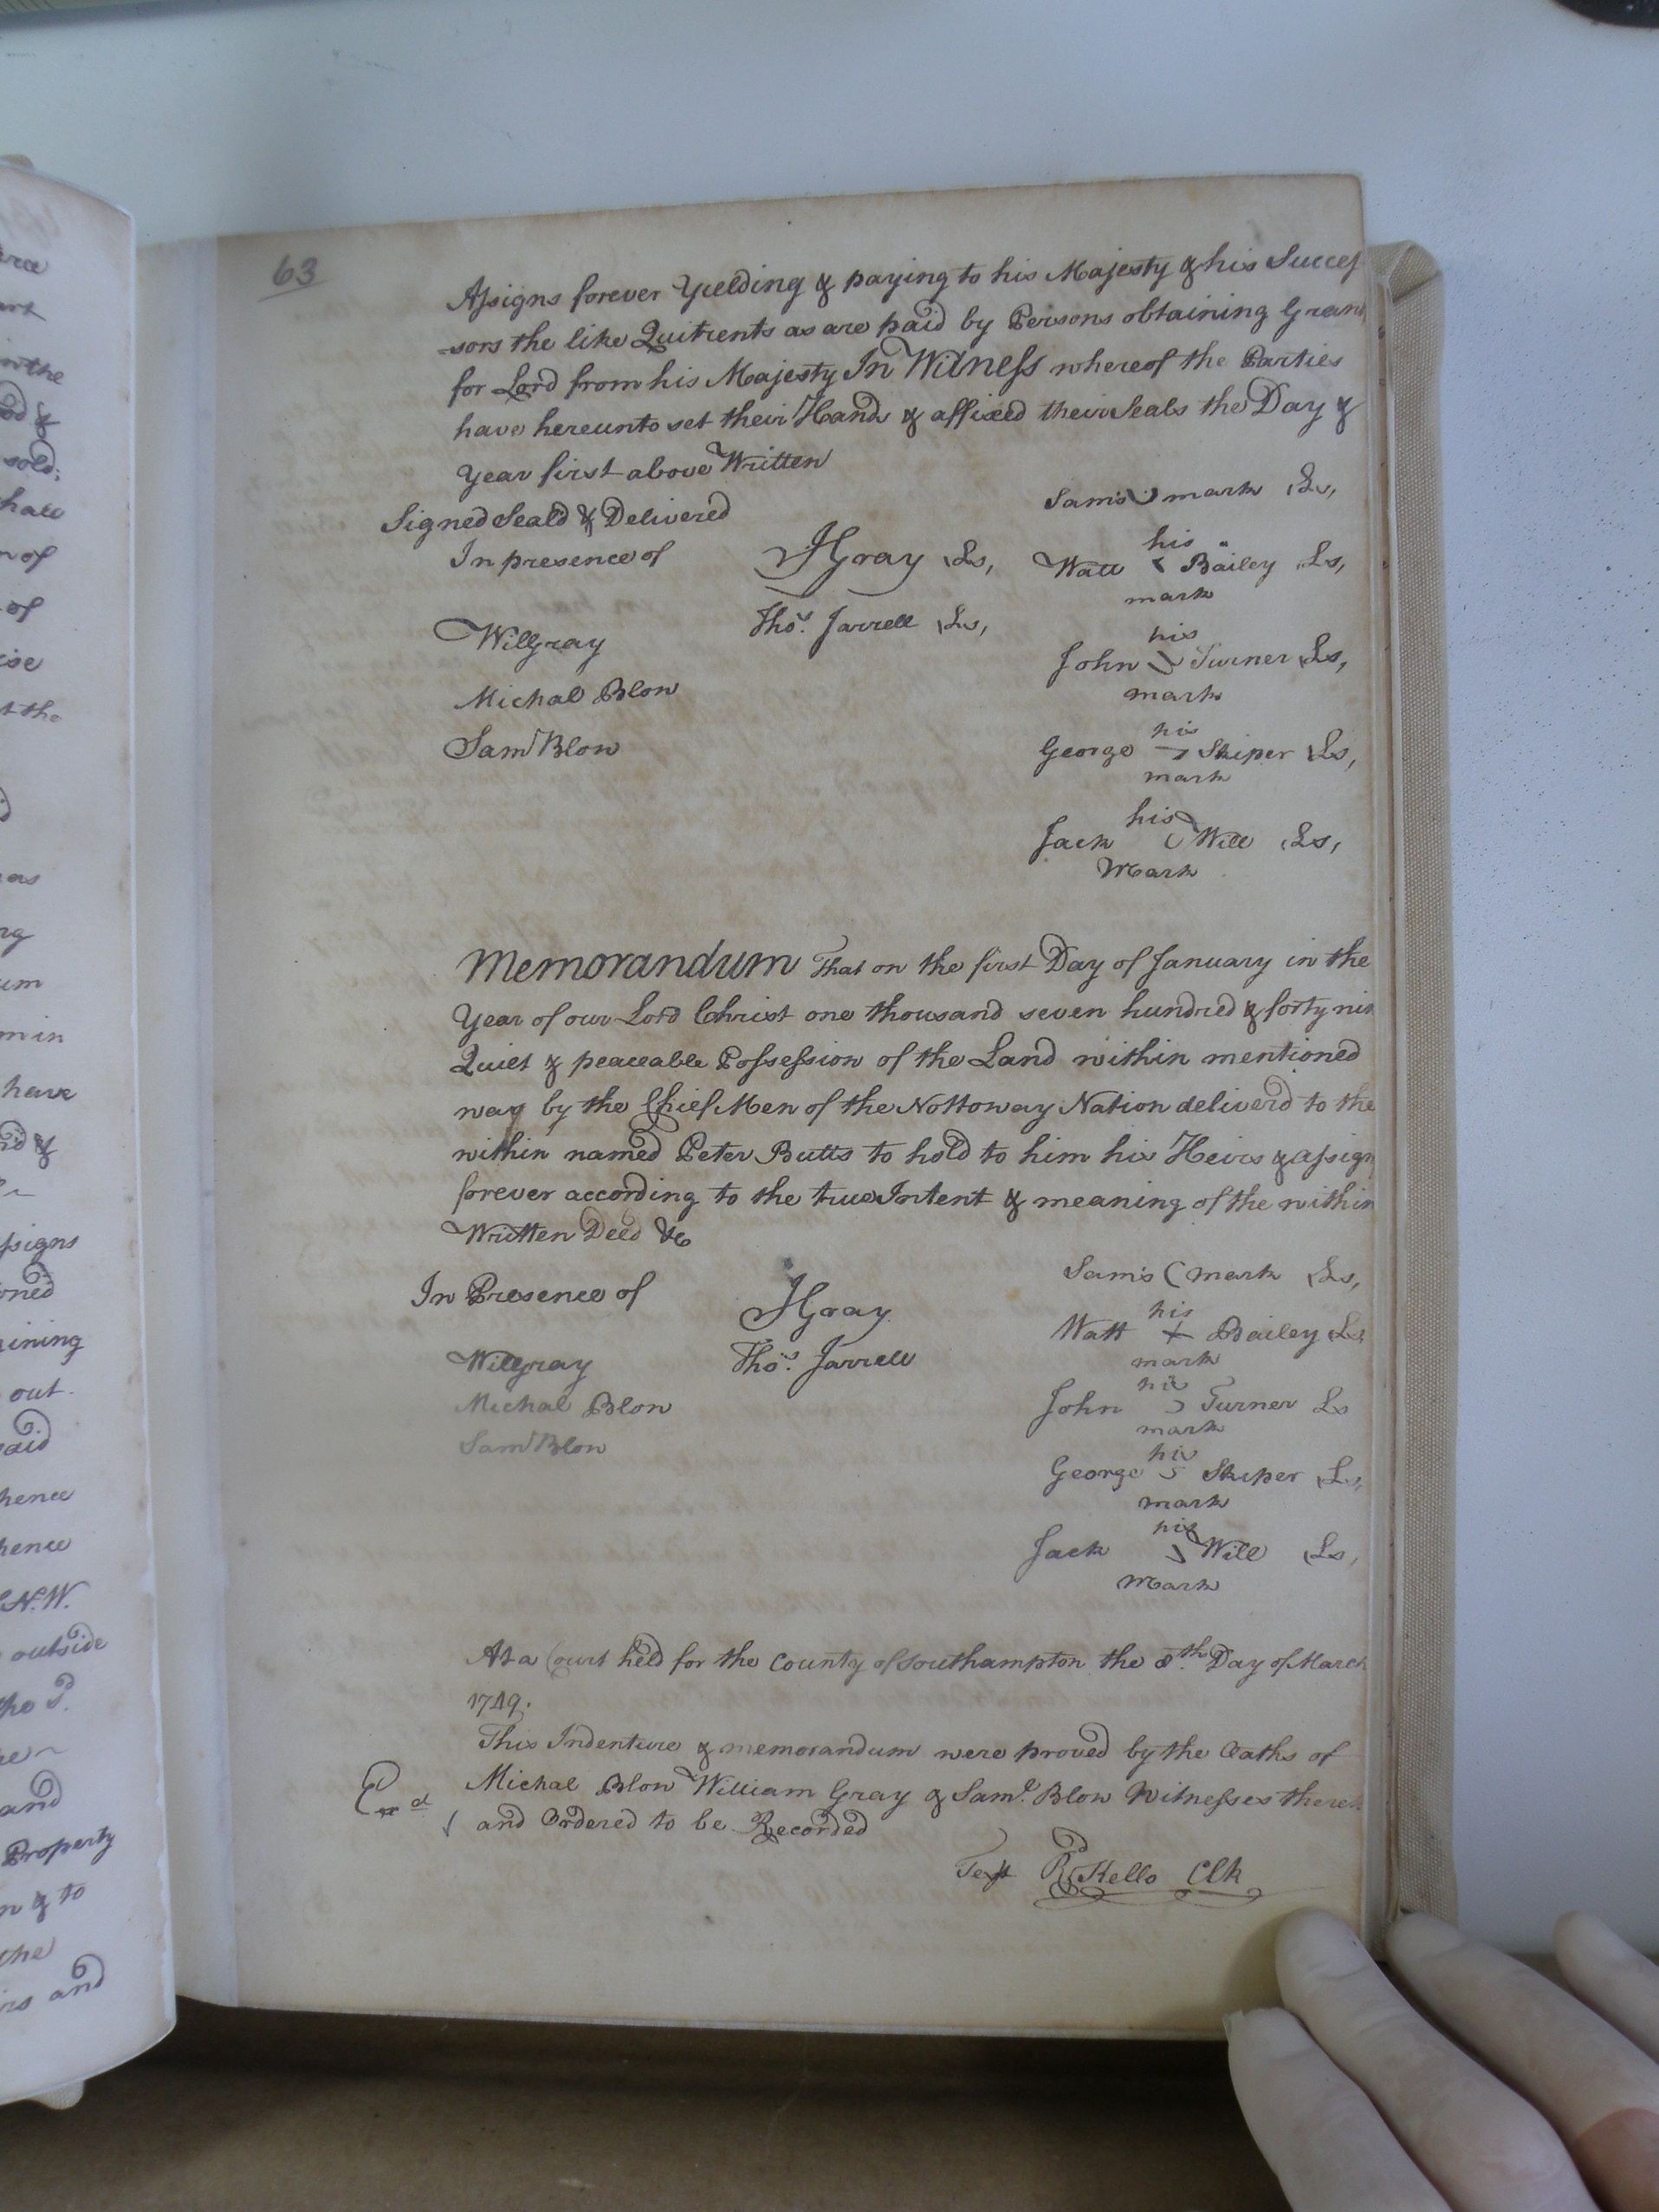 63
Assigns forever Yielding & paying to his Majesty & his Succes
-sors the like Quitrents as are paid by Persons obtaining Grants
for Lord from his Majesty In Witness whereof the Parties
have hereunto set their Hands & affixed their Seals the Day &
Year first above Written
Signed Seald & Delivered
In presence of
Will Gray
Michal Blow
Saml Blow
J Gray Ls,
Thos. Jarrell Ls,
Sam's mark Ls,
his
Watt Bailey Ls,
mark
his
John Turner Ls,
mark
his
George Skiper Ls,
mark
his
Jack Will Ls,
Mark
Memorandum That on the first Day of January in the
Year of our Lord Christ one thousand seven hundred & forty nin
Quiet & peaceable Possession of the Land within mentioned
was by the Chief Men of the Nottoway Nation deliverd to the
within named Peter Butts to hold to him his Heirs & assign
forever according to the true Intent & meaning of the within
Written Deed &c
In Presence of
Will Gray
Michal Blow
Saml Blow
J Gray
Thos. Jarrell
Sam's mark Ls,
his
Watt + Bailey Ls
mark
his
John Turner Ls
mark
his
George Skiper Ls,
mark
his
Jack Will Ls,
Mark
At a Court held for the County of Southampton the 8th. Day of March
1749.
This Indenture & memorandum were proved by the Oaths of
Michal Blow William Gray & Saml. Blow Witnesses there
and Ordered to be Recorded
Exd
Test Rd Kello Clk